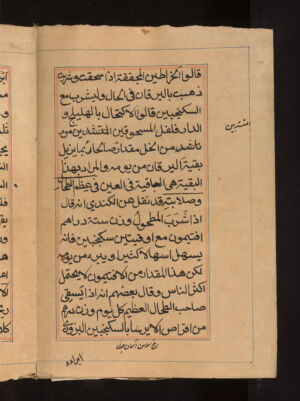 قالوا الخراطين المجففة اذا سحقت وشربت
ذهبت باليرقان في الحال وليشرب مع
السكنجبين قالوا الاكتحال بالهليلج و
الدار فلفل المسحوقين المتقدين من
الخل مقدار صالحا يزيل
بقية اليرقان من يومه والمراد بهذا
البقية هي العافية في العين في عظم الطحال
وصلابته قد نقل عن الكندي انه قال
اذا شرب المطحول وزن ستة دراهم
افتيمون مع اوقيتين سكنجبين فانه
يسهل اسهالا كثيرا ويبرء من يومه
لكن هذا المقدار من الافتيمون لا يحتمل
اكثر الناس وقال بعضهم انه اذا يسقى
صاحب الطحال العظيم كل يوم وزن درهم
من اقراص الايرسا بالسكنجبين البزوري